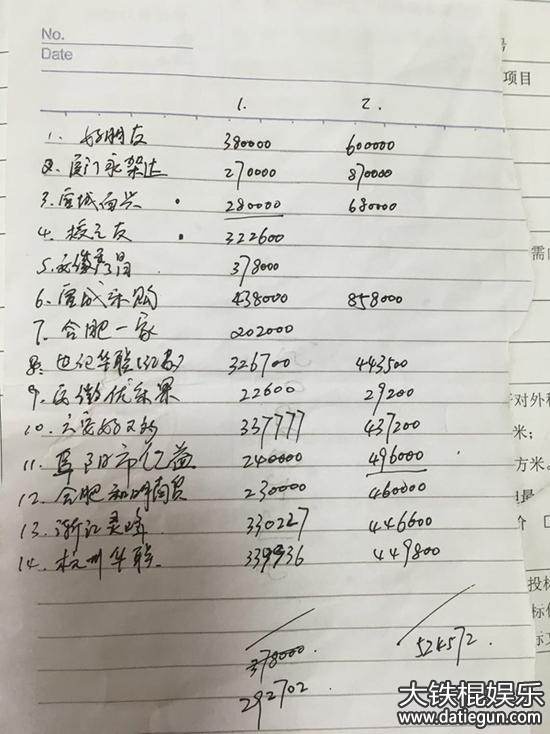 No.
Date
号
项目
1. 2.
1. 好朋友 380000 600000
2. 厦门永架达 270000 870000
3. 宣城百兴 280000 680000
4. 322600
5. 安徽 378000
6. 宣城采购 438000 858000
7. 合肥一家 202000
8. 世纪华联 326700 443500
9. 安徽优乐果 22600 29200
10. 六安好又多 337777 437200
11. 阜阳市亿益 240000 496000
12. 合肥和明商贸 230000 460000
13. 浙江灵峰 330227 446600
14. 杭州华联 339936 449800
378000 524572
292702
需
对外
米；
方米。
价 口
投标
标
标
大铁棍娱乐
www.datiegun.com